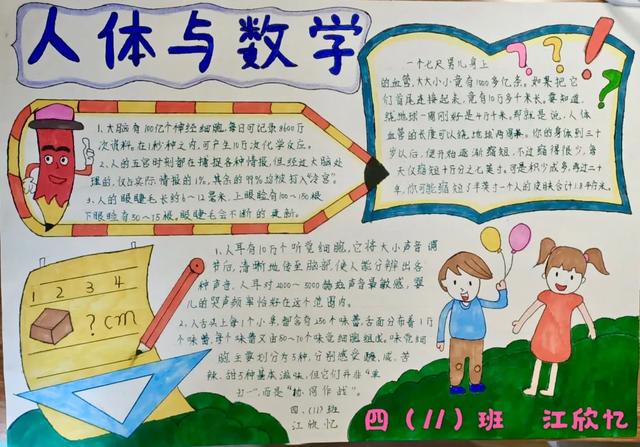 人体与数学
1、大脑有100亿个神经细胞,每日可记录8600万
次资料,在1秒钟之内,可产生10万次化学反应。
2、人的五官时刻都在捕捉各种情报,但经过大脑处
理的,仅占实际情报的1%,其余的99%均被打入"冷宫"。
3、人的眼睫毛长约6~12毫米,上眼睑有100~150根,
下眼睑有50~75根。眼睫毛会不断的更新。
一个七尺男儿身上
的血管,大大小小竟有1000多亿条。如果把它
们首尾连接起来,竟有10万多千米长。要知道,
绕地球一周刚好是4万千米,那就是说,人体
血管的长度可以绕地球两周半。你的身体到三十
岁以后,便开始逐渐缩短,不过缩得很少,每
天仅缩短十万分之七英寸。可是积少成多,再过二十
年,你可能缩短了半英寸。一个人的皮肤合计1.8平方米。
? ? ? !
1 2 3 4
? cm
1、人耳有10万个听觉细胞,它将大小声音调
节后,清晰地传至脑部,使人能分辨出各
种声音。人耳对2000~5000赫兹声音最敏感,婴
儿的哭声频率恰好在这个范围内。
2、人舌头上每1个小束,都含有250个味蕾,舌面分布着1万
个味蕾,每个味蕾又由50~70个味觉细胞组成。味觉细
胞主要划分为5种,分别感受酸、咸、苦、
辣、甜5种基本滋味,但它们并非"单
打一",而是"协同作战"。
四、(11)班
江欣忆
四(11)班 江欣忆